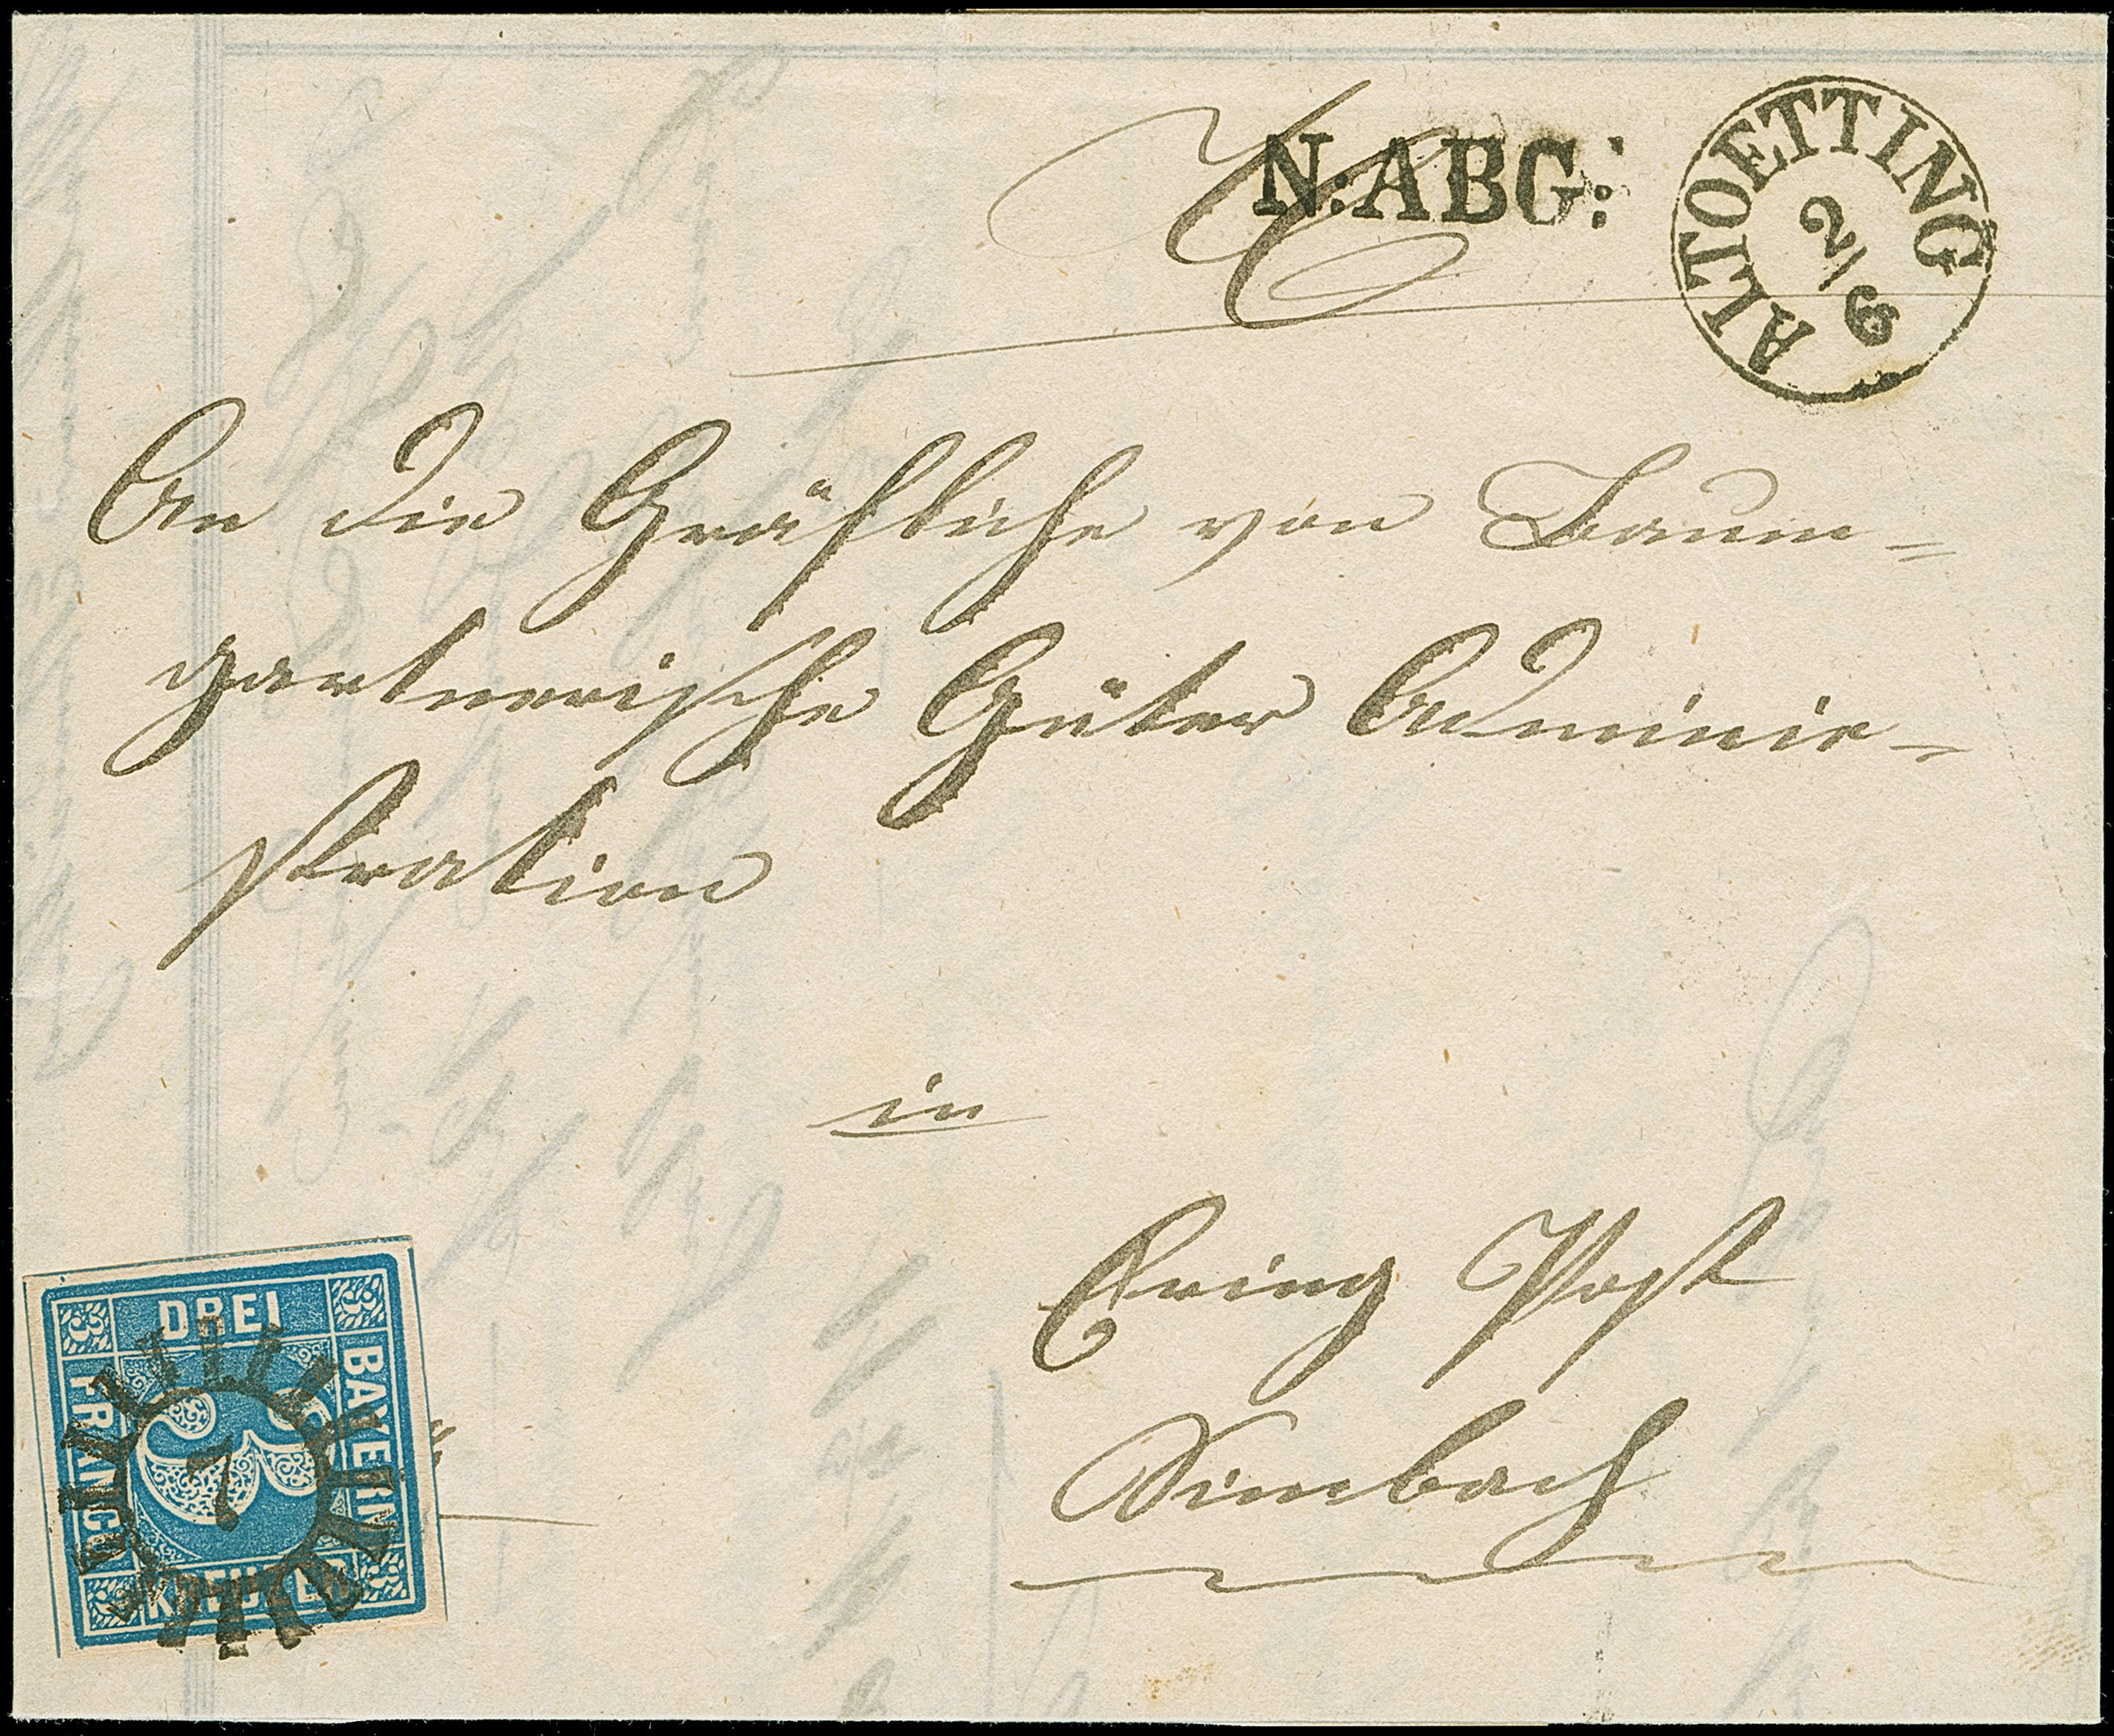 N:ABG:
ALTOETTING
2/6
An die Gräfliche von Baum=
gartnerische Güter Adminis=
stration
in
Ering Post
Simbach
DREI
BAYERN
FRANCO
KREUZER
3
7